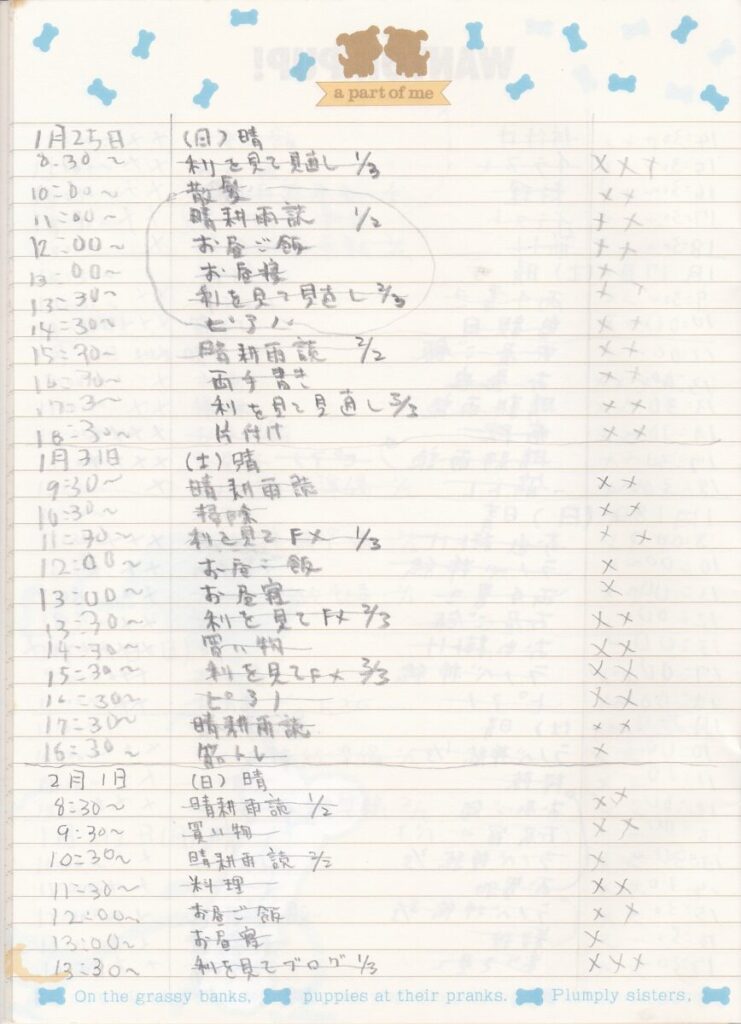 a part of me
1月25日 (日) 晴
8:30〜 利を見て見直し 1/3 × × ×
10:00〜 散髪 × ×
11:00〜 晴耕雨読 1/2 × ×
12:00〜 お昼ご飯 × ×
13:00〜 お昼寝 ×
13:30〜 利を見て見直し 2/3 × ×
14:30〜 ピアノ × ×
15:30〜 晴耕雨読 2/2 × ×
16:30〜 両手書き × ×
17:3〜 利を見て見直し 3/3 × ×
18:30〜 片付け × ×
1月31日 (土) 晴
9:30〜 晴耕雨読 × ×
10:30〜 掃除 × ×
11:30〜 利を見てFX 1/3 × ×
12:00〜 お昼ご飯 ×
13:00〜 お昼寝 ×
13:30〜 利を見てFX 2/3 × ×
14:30〜 買い物 × ×
15:30〜 利を見てFX 3/3 × ×
16:30〜 ピアノ × ×
17:30〜 晴耕雨読 × ×
18:30〜 筋トレ ×
2月1日 (日) 晴
8:30〜 晴耕雨読 1/2 × ×
9:30〜 買い物 × ×
10:30〜 晴耕雨読 2/2 ×
11:30〜 料理 × ×
12:00〜 お昼ご飯 × ×
13:00〜 お昼寝 ×
13:30〜 利を見てブログ 1/3 × × ×
On the grassy banks, puppies at their pranks. Plumply sisters,